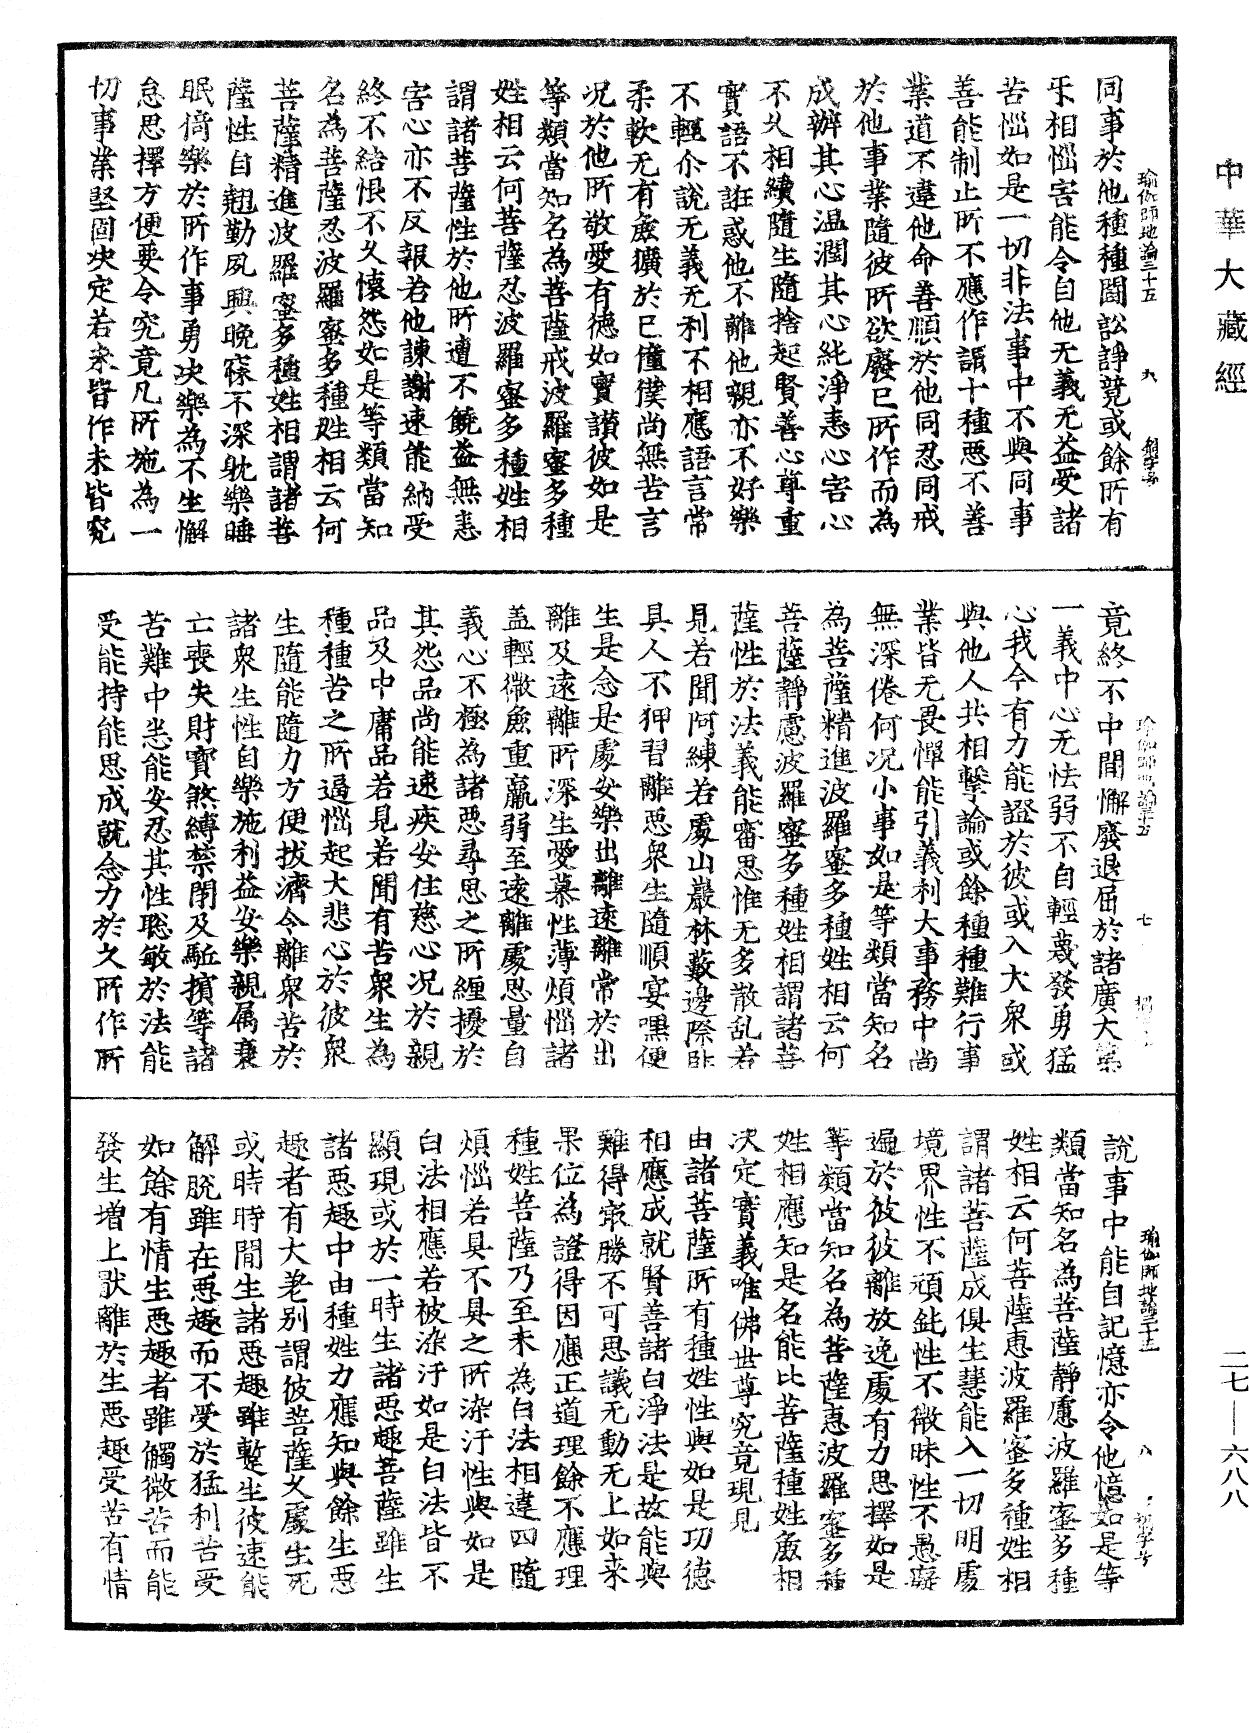 中華大藏經
瑜伽師地論三十五　九
同事於他種種鬪訟諍競或餘所有
乐相惱害能令自他无義无益受諸
苦惱如是一切非法事中不與同事
善能制止所不應作謂十種惡不善
業道不違他命善順於他同忍同戒
於他事業隨彼所欲廢已所作而為
成辦其心温潤其心純淨恚心害心
不久相續隨生隨捨起賢善心尊重
實語不誑惑他不離他親亦不好樂
不輕尒說无義无利不相應語言常
柔軟无有麁獷於已僮僕尚無苦言
况於他所敬愛有德如實讃彼如是
等類當知名為菩薩戒波羅蜜多種
姓相云何菩薩忍波羅蜜多種姓相
謂諸菩薩性於他所遭不饒益無恚
害心亦不反報若他諫謝速能納受
終不結恨不久懷怨如是等類當知
名為菩薩忍波羅蜜多種姓相云何
菩薩精進波羅蜜多種姓相謂諸菩
薩性自翹勤夙興晚寐不深躭樂睡
眠倚樂於所作事勇决樂為不生懈
怠思擇方便要令究竟凡所施為一
切事業堅固决定若未皆作未皆究
七
竟終不中間懈廢退屈於諸廣大第
一義中心无怯弱不自輕蔑發勇猛
心我今有力能證於彼或入大衆或
與他人共相擊論或餘種種難行事
業皆无畏憚能引義利大事務中尚
無深倦何况小事如是等類當知名
為菩薩精進波羅蜜多種姓相云何
菩薩靜慮波羅蜜多種姓相謂諸菩
薩性於法義能審思惟无多散乱若
見若聞阿練若處山巖林藪邊際卧
具人不狎習離惡衆生隨順宴嘿便
生是念是處安樂出離遠離常於出
離及遠離所深生愛慕性薄煩惱諸
盖輕微麁重羸弱至遠離處思量自
義心不極為諸惡尋思之所纏擾於
其怨品尚能速疾安住慈心况於親
品及中庸品若見若聞有苦衆生為
種種苦之所逼惱起大悲心於彼衆
生隨能隨力方便拔濟令離衆苦於
諸衆生性自樂施利益安樂親属衰
亡喪失財寶煞縛禁閉及駈擯等諸
苦難中悉能安忍其性聡敏於法能
受能持能思成就念力於久所作所
瑜伽師地論三十五　八
說事中能自記憶亦令他憶如是等
類當知名為菩薩靜慮波羅蜜多種
姓相云何菩薩惠波羅蜜多種姓相
謂諸菩薩成俱生慧能入一切明處
境界性不頑鈍性不微昧性不愚癡
遍於彼彼離放逸處有力思擇如是
等類當知名為菩薩惠波羅蜜多種
姓相應知是名能比菩薩種姓麁相
决定實義唯佛世尊究竟現見
由諸菩薩所有種姓性與如是功德
相應成就賢善諸白淨法是故能與
難得寂勝不可思議无動无上如来
果位為證得因應正道理餘不應理
種姓菩薩乃至未為白法相違四隨
煩惱若具不具之所染汙性與如是
白法相應若被染汙如是白法皆不
顯現或於一時生諸惡趣菩薩雖生
諸惡趣中由種姓力應知與餘生惡
趣者有大差别謂彼菩薩久處生死
或時時間生諸惡趣雖暫生彼速能
解脫雖在惡趣而不受於猛利苦受
如餘有情生惡趣者雖觸微苦而能
發生增上猒離於生惡趣受苦有情
二七—六八八